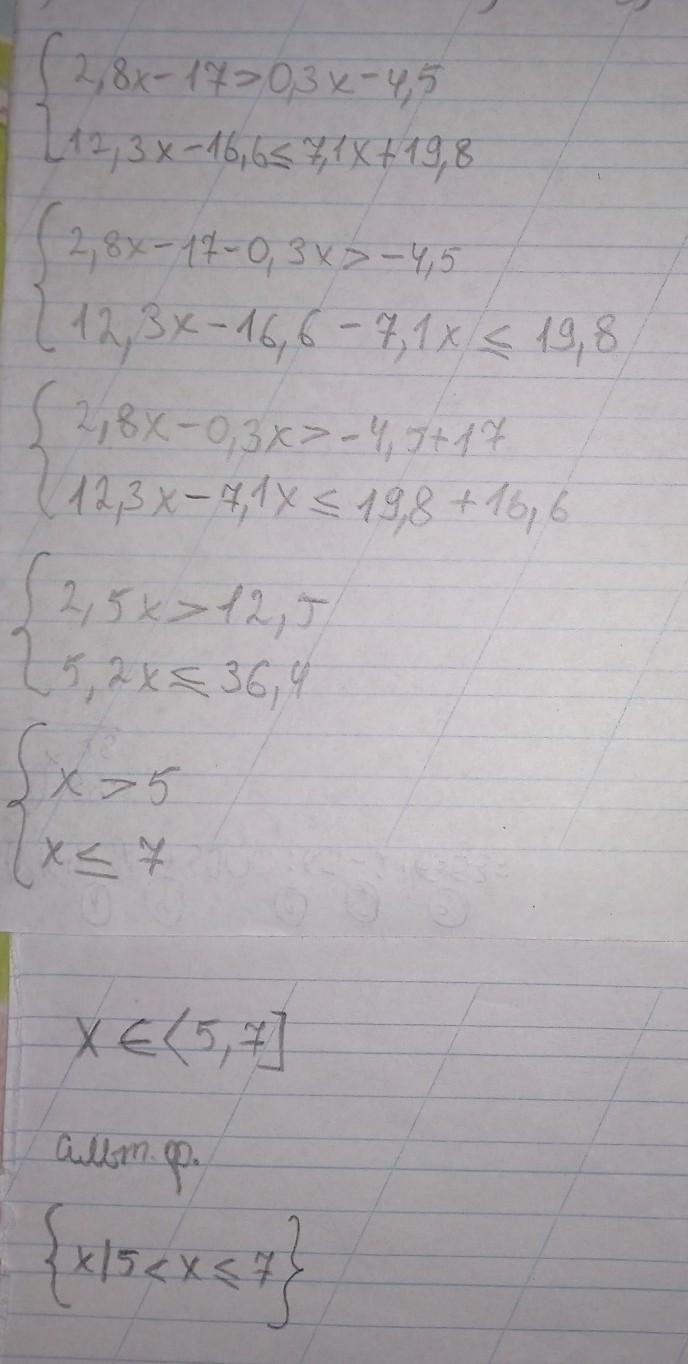 {2,8x-17>0,3x-4,5
12,3x-16,6≤7,1x+19,8
{2,8x-17-0,3x>-4,5
12,3x-16,6-7,1x≤19,8
{2,8x-0,3x>-4,5+17
12,3x-7,1x≤19,8+16,6
{2,5x>12,5
5,2x≤36,4
{x>5
x≤7
x∈⟨5,7]
альт. ф.
{x|5<x≤7}